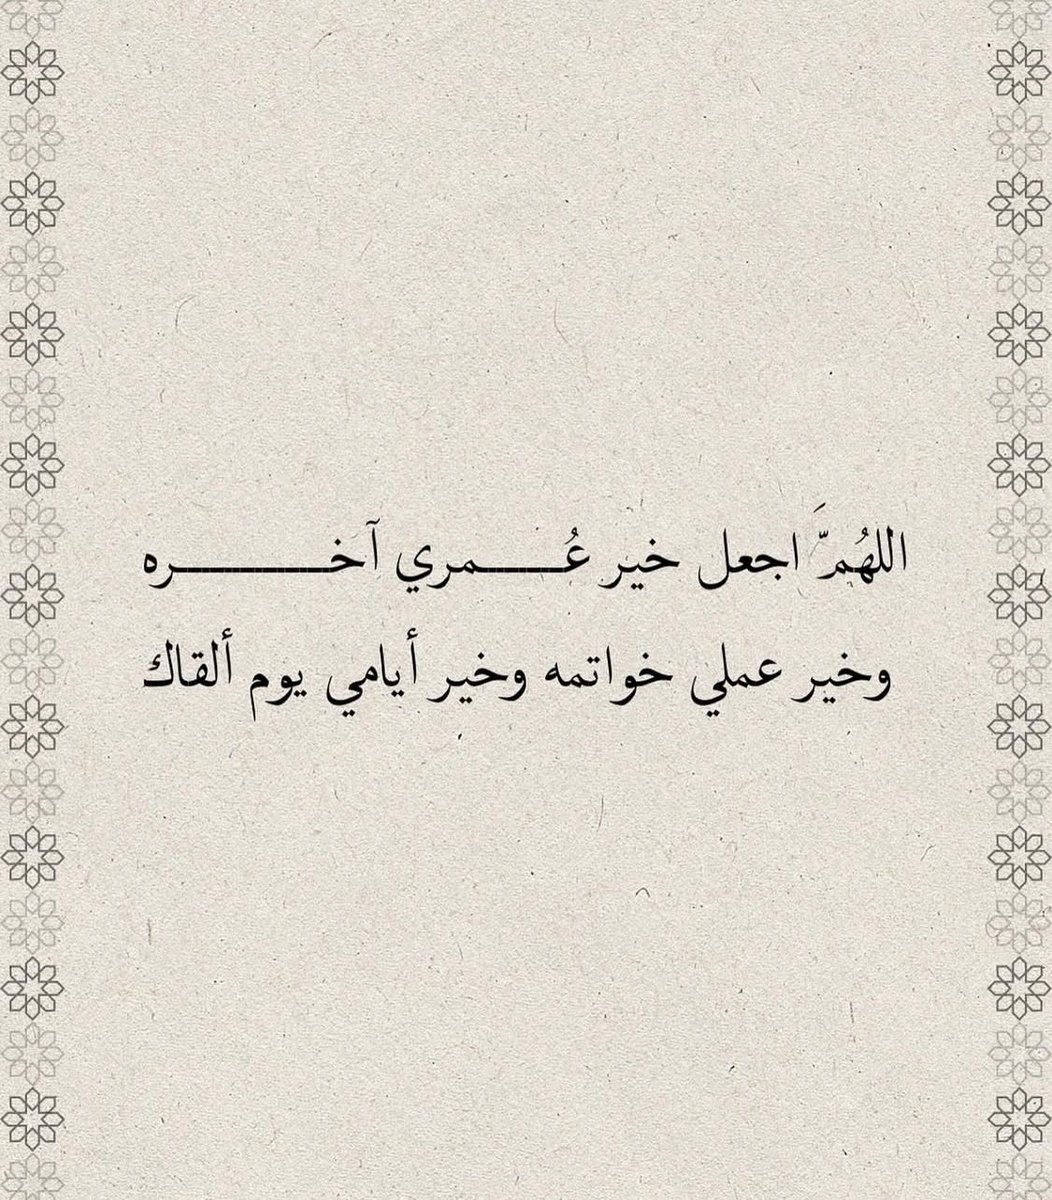 اللهُمَّ اجعل خير عُـــــمري آخـــــــــره
وخير عملي خواتمه وخير أيامي يوم ألقاك